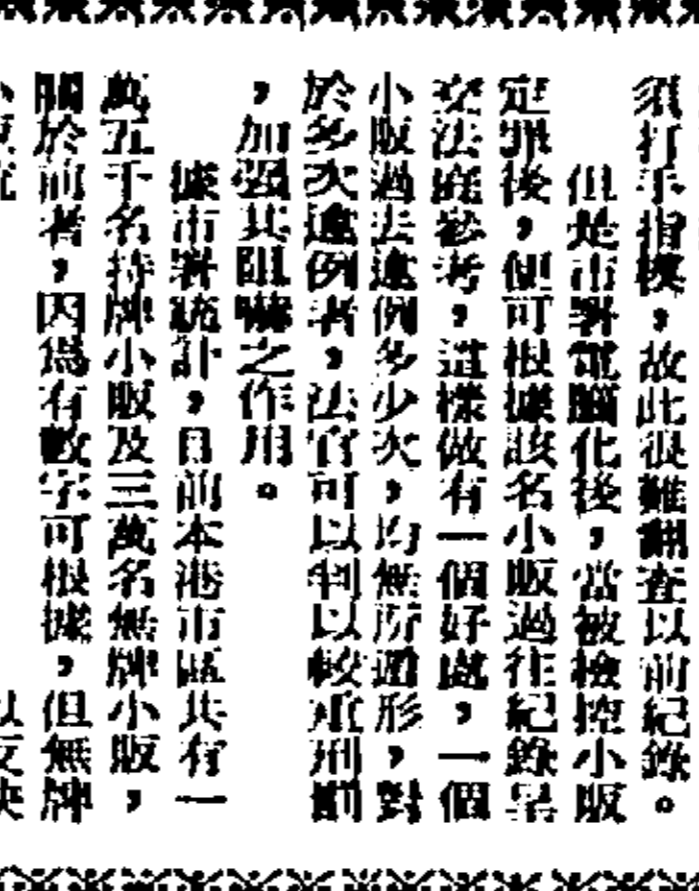 須打手指模，故此很難翻查以前紀錄。
但是市署電腦化後，當被檢控小販
定罪後，便可根據該名小販過往紀錄呈
交法庭參考，這樣做有一個好處，一個
小販過去違例多少次，均無所遁形，對
於多次違例者，法官可以判以較重刑罰
，加强其阻嚇之作用。
據市署統計，目前本港市區共有一
萬五千名持牌小販及三萬名無牌小販，
關於前者，因爲有數字可根據，但無牌